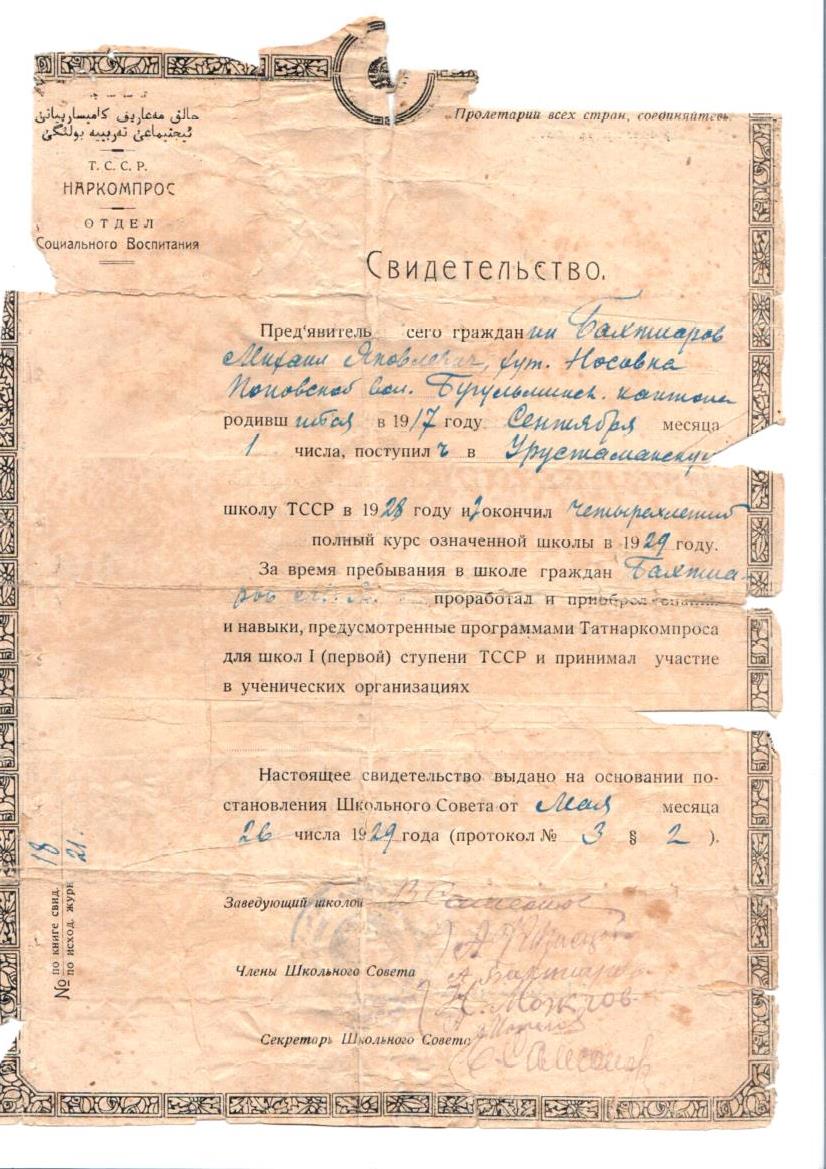 Пролетарии всех стран, соединяйтесь
حالق مەعاریف کامیسارییاتی
ئیجتیماعی تەربییە بولئگئ
Т. С. С. Р.
НАРКОМПРОС
ОТДЕЛ
Социального Воспитания
Свидетельство.
Пред'явитель сего гражданин Бахтиаров
Михаил Яковлевич, хут. Носовка
Поповской вол. Бугульминск. кантона
родившийся в 1917 году Сентября месяца
1 числа, поступил в Урустаманскую
школу ТССР в 1928 году и окончил четырехлетний
полный курс означенной школы в 1929 году.
За время пребывания в школе граждан Бахтиа-
ров проработал и приобрел знания
и навыки, предусмотренные программами Татнаркомпроса
для школ I (первой) ступени ТССР и принимал участие
в ученических организациях
Настоящее свидетельство выдано на основании по-
становления Школьного Совета от Мая месяца
26 числа 1929 года (протокол № 3 § 2 ).
Заведующий школой
Члены Школьного Совета
Секретарь Школьного Совета
№ по книге свид. 18
по исход. журн 21.